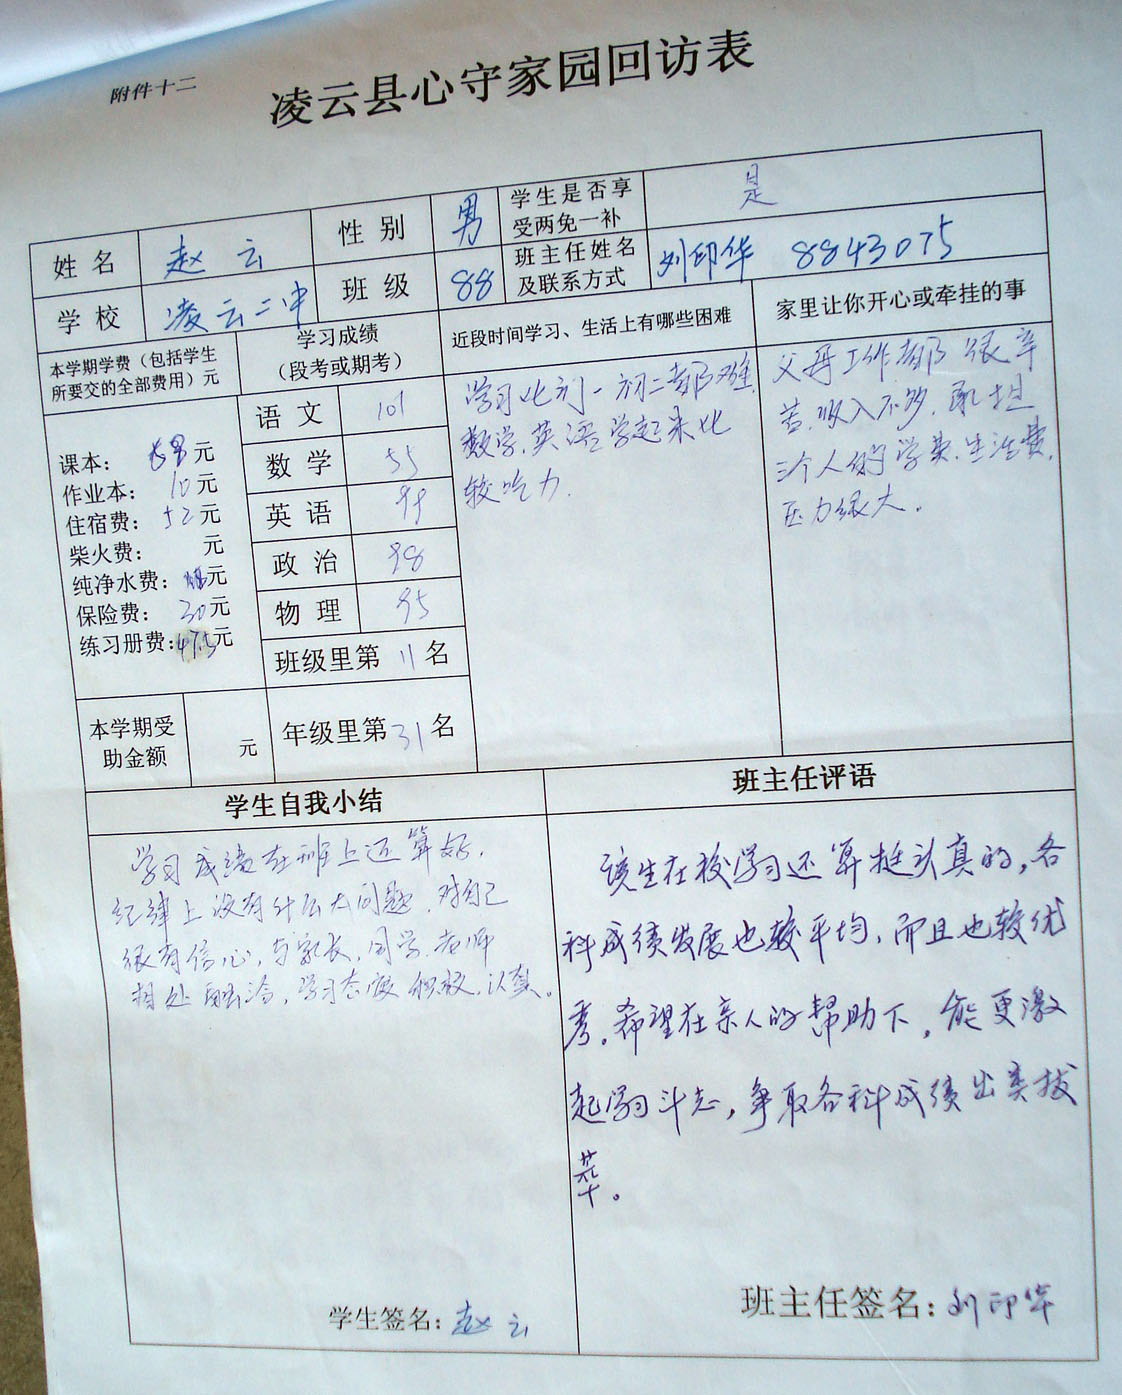 附件十二
凌云县心守家园回访表
姓名 赵云 性别 男 学生是否享受两免一补 是
学校 凌云二中 班级 88 班主任姓名及联系方式 刘印华 8843075
本学期学费（包括学生所要交的全部费用）元
学习成绩（段考或期考）
近段时间学习、生活上有哪些困难
家里让你开心或牵挂的事
课本： 元
作业本：10元
住宿费：52元
柴火费： 元
纯净水费： 元
保险费：30元
练习册费：47.5元
语文 101
数学 55
英语 99
政治 98
物理 95
班级里第 11 名
年级里第 31 名
本学期受助金额 元
学习比初一初二都难，
数学，英语学起来比
较吃力．
父母工作都很辛
苦，收入不够，承担
三个人的学费、生活费，
压力很大．
学生自我小结
学习成绩在班上还算好，
纪律上没有什么大问题，对自己
很有信心，与家长，同学，老师
相处融洽，学习态度积极，认真。
学生签名：赵云
班主任评语
该生在校学习还算挺认真的，各
科成绩发展也较平均，而且也较优
秀。希望在亲人的帮助下，能更激
起学习斗志，争取各科成绩出类拔
萃。
班主任签名：刘印华